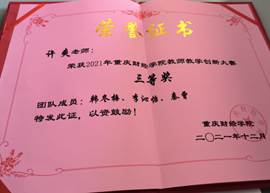 荣誉证书
许爽老师：
荣获2021年重庆财经学院教师教学创新大赛
三等奖
团队成员：韩冬梅、李江怡、秦莹
特发此证，以资鼓励！
重庆财经学院
二〇二一年十二月